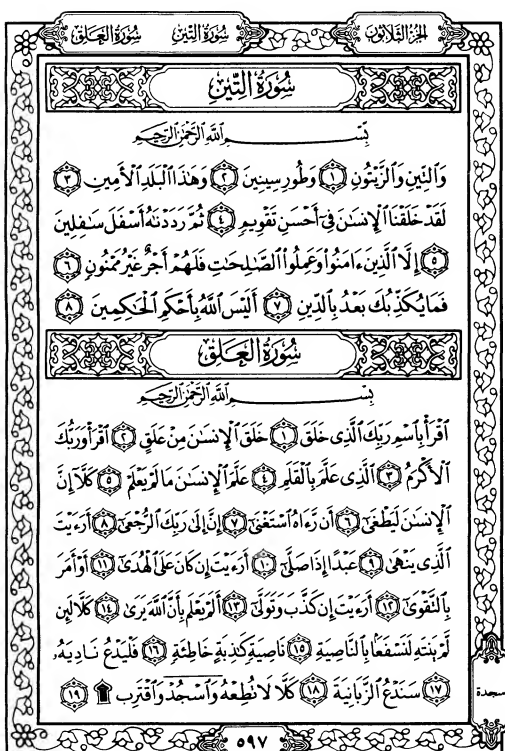 الجزء الثلاثون سورة التين سورة العلق
سُورَةُ التِّينِ
بِسْمِ اللَّهِ الرَّحْمَٰنِ الرَّحِيمِ
وَٱلتِّينِ وَٱلزَّيْتُونِ ١ وَطُورِ سِينِينَ ٢ وَهَٰذَا ٱلْبَلَدِ ٱلْأَمِينِ ٣
لَقَدْ خَلَقْنَا ٱلْإِنسَٰنَ فِىٓ أَحْسَنِ تَقْوِيمٍ ٤ ثُمَّ رَدَدْنَٰهُ أَسْفَلَ سَٰفِلِينَ
٥ إِلَّا ٱلَّذِينَ ءَامَنُوا۟ وَعَمِلُوا۟ ٱلصَّٰلِحَٰتِ فَلَهُمْ أَجْرٌ غَيْرُ مَمْنُونٍ ٦
فَمَا يُكَذِّبُكَ بَعْدُ بِٱلدِّينِ ٧ أَلَيْسَ ٱللَّهُ بِأَحْكَمِ ٱلْحَٰكِمِينَ ٨
سُورَةُ الْعَلَقِ
بِسْمِ اللَّهِ الرَّحْمَٰنِ الرَّحِيمِ
ٱقْرَأْ بِٱسْمِ رَبِّكَ ٱلَّذِى خَلَقَ ١ خَلَقَ ٱلْإِنسَٰنَ مِنْ عَلَقٍ ٢ ٱقْرَأْ وَرَبُّكَ
ٱلْأَكْرَمُ ٣ ٱلَّذِى عَلَّمَ بِٱلْقَلَمِ ٤ عَلَّمَ ٱلْإِنسَٰنَ مَا لَمْ يَعْلَمْ ٥ كَلَّآ إِنَّ
ٱلْإِنسَٰنَ لَيَطْغَىٰٓ ٦ أَن رَّءَاهُ ٱسْتَغْنَىٰٓ ٧ إِنَّ إِلَىٰ رَبِّكَ ٱلرُّجْعَىٰٓ ٨ أَرَءَيْتَ
ٱلَّذِى يَنْهَىٰ ٩ عَبْدًا إِذَا صَلَّىٰٓ ١٠ أَرَءَيْتَ إِن كَانَ عَلَى ٱلْهُدَىٰٓ ١١ أَوْ أَمَرَ
بِٱلتَّقْوَىٰٓ ١٢ أَرَءَيْتَ إِن كَذَّبَ وَتَوَلَّىٰٓ ١٣ أَلَمْ يَعْلَم بِأَنَّ ٱللَّهَ يَرَىٰ ١٤ كَلَّا لَئِن
لَّمْ يَنتَهِ لَنَسْفَعًۢا بِٱلنَّاصِيَةِ ١٥ نَاصِيَةٍ كَٰذِبَةٍ خَاطِئَةٍ ١٦ فَلْيَدْعُ نَادِيَهُۥ
١٧ سَنَدْعُ ٱلزَّبَانِيَةَ ١٨ كَلَّا لَا تُطِعْهُ وَٱسْجُدْ وَٱقْتَرِب ۩ ١٩
سجدة
٥٩٧